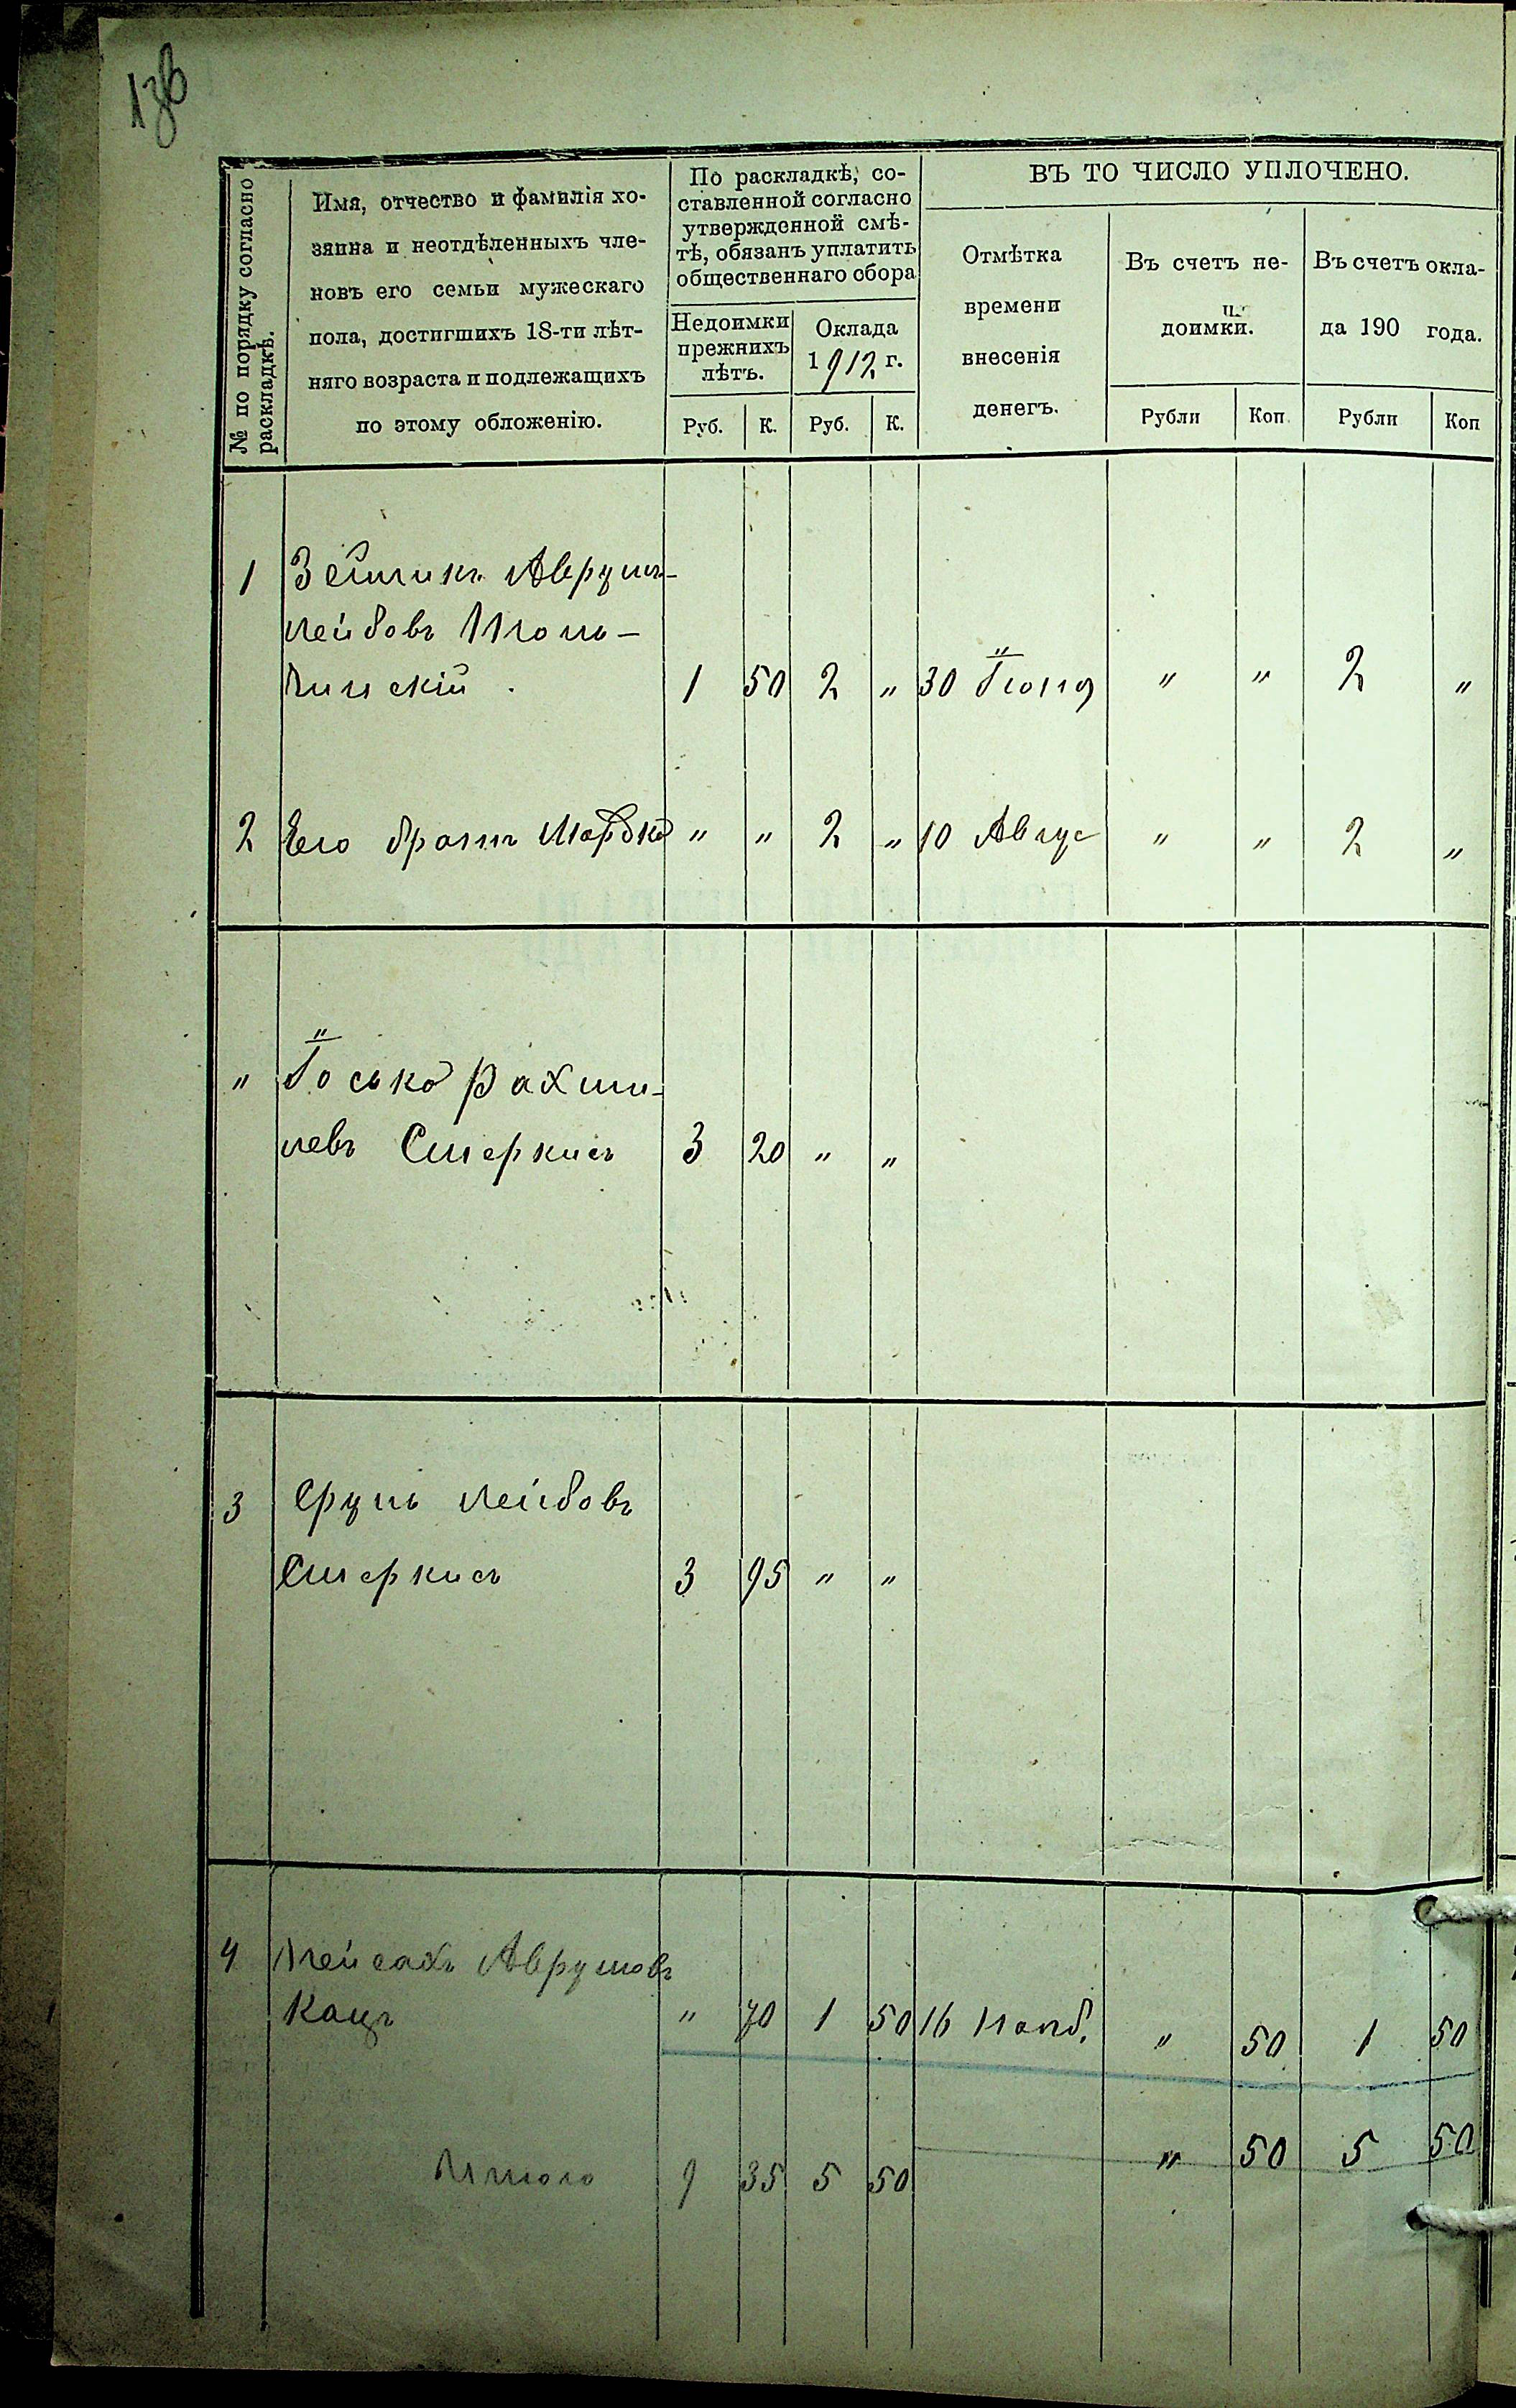 136
№ по порядку согласно раскладкѣ.
Имя, отчество и фамилія хо-
зяина и неотдѣленныхъ чле-
новъ его семьи мужескаго
пола, достигшихъ 18-ти лѣт-
няго возраста и подлежащихъ
по этому обложенію.
По раскладкѣ, со-
ставленной согласно
утвержденной смѣ-
тѣ, обязанъ уплатить
общественнаго сбора
Недоимки
прежнихъ
лѣтъ.
Оклада
1912 г.
Руб. К. Руб. К.
ВЪ ТО ЧИСЛО УПЛОЧЕНО.
Отмѣтка
времени
внесенія
денегъ.
Въ счетъ не-
доимки.
Рубли Коп.
Въ счетъ окла-
да 190 года.
Рубли Коп
1 Зелликъ Аврумъ-
Лейбовъ
1 50 2 „ 30 Іюня „ „ 2 „
2 Его братъ Мордко „ „ 2 „ 10 Авгус „ „ 2 „
„ Іосько Рахми-
левъ Смеркисъ 3 20 „ „
3 Сруль Лейбовъ
Смеркисъ 3 95 „ „
4 Пейсахъ Аврумовъ
Кацъ „ 70 1 50 16 Нояб. „ 50 1 50
Итого 9 35 5 50 „ 50 5 50